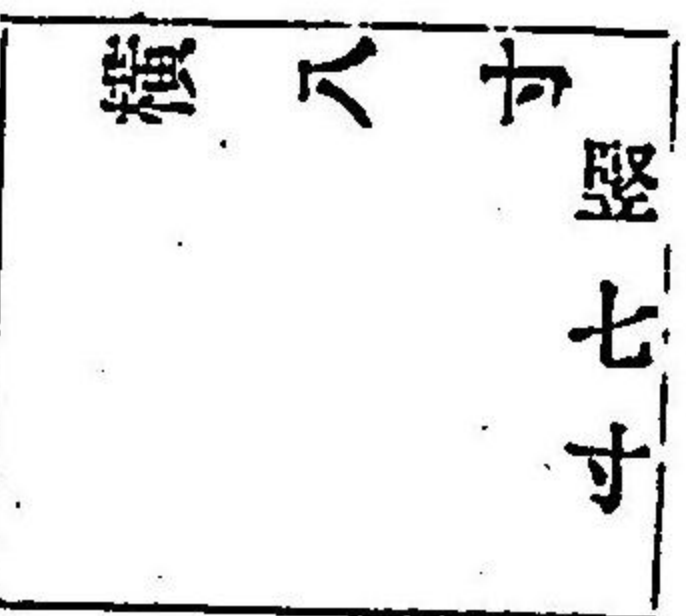 橫八寸
竪七寸